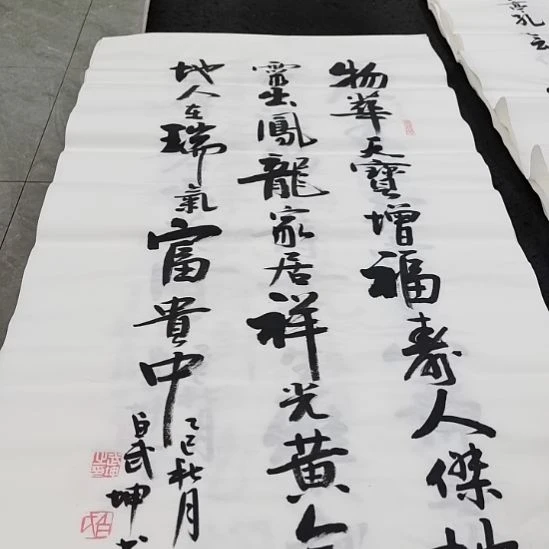 物華天寶增福壽人傑地
靈出鳳龍家居祥光黃金
地人在瑞氣富貴中
乙巳秋月
白武坤